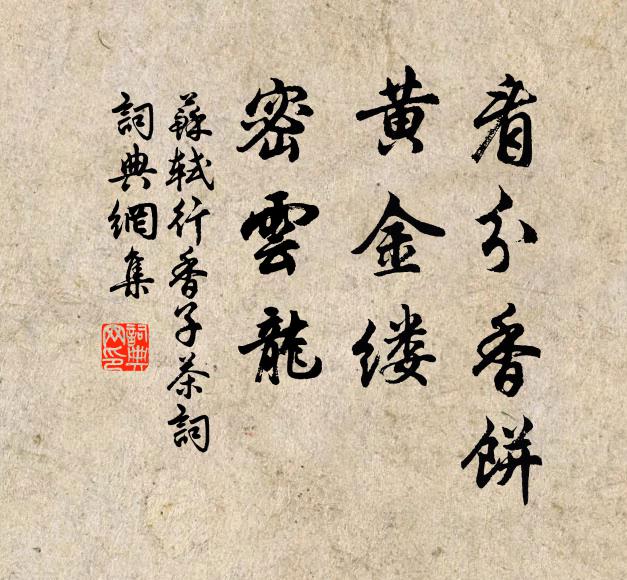 看分香餅
黃金縷
密雲龍
蘇軾行香子茶詞
詞典網集
詞典网印